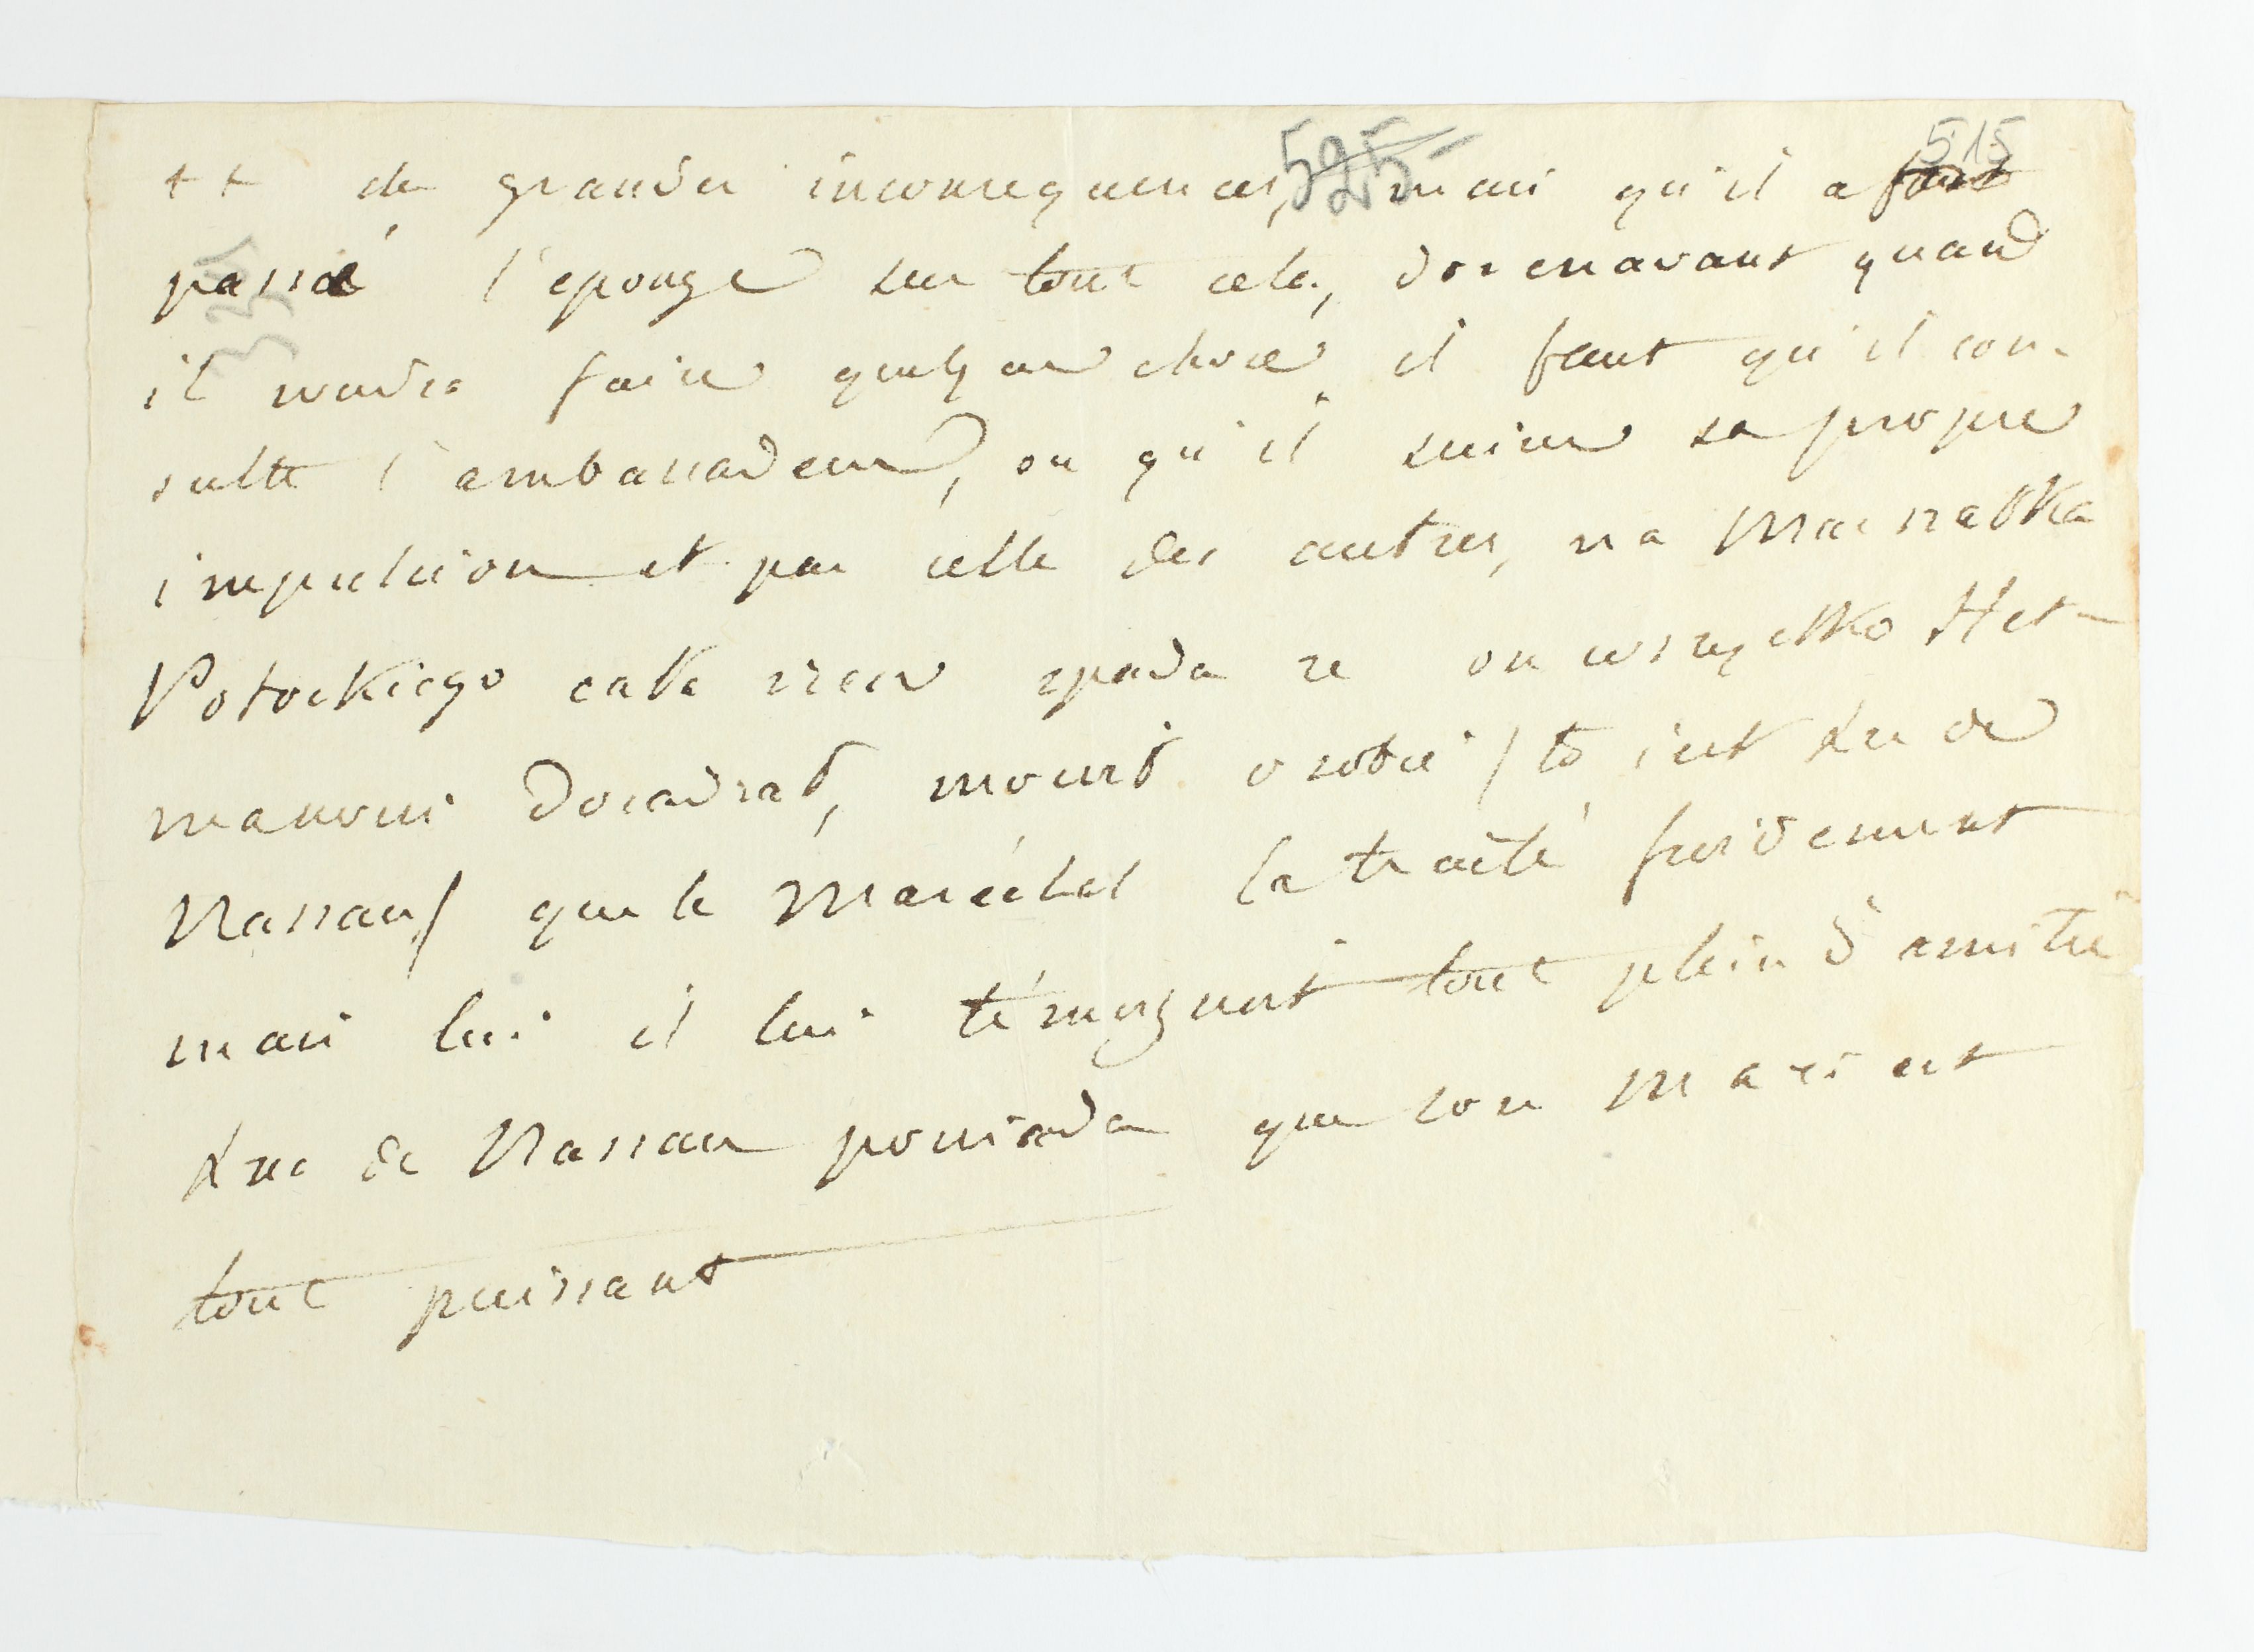 525 515
++ de grandes inconsequences, mais qu'il a fait
passé l'eponge sur tout cela, dorenavant quand
il voudra faire quelque chose il faut qu'il con-
sulte l'ambassadeur, ou qu'il suive sa propre
impulsion et pas celle des autres, na Marszałka
Potockiego cała rzecz spada ze on wszystko Het-
manowi doradzał, mowił o sobie / to iest Xse de
Nassau / que le Maréchal la traité froidement
mais lui il lui témoignoit tout plein d'amitié
Xna de Nassau powiada que son Mari est
tout puissant